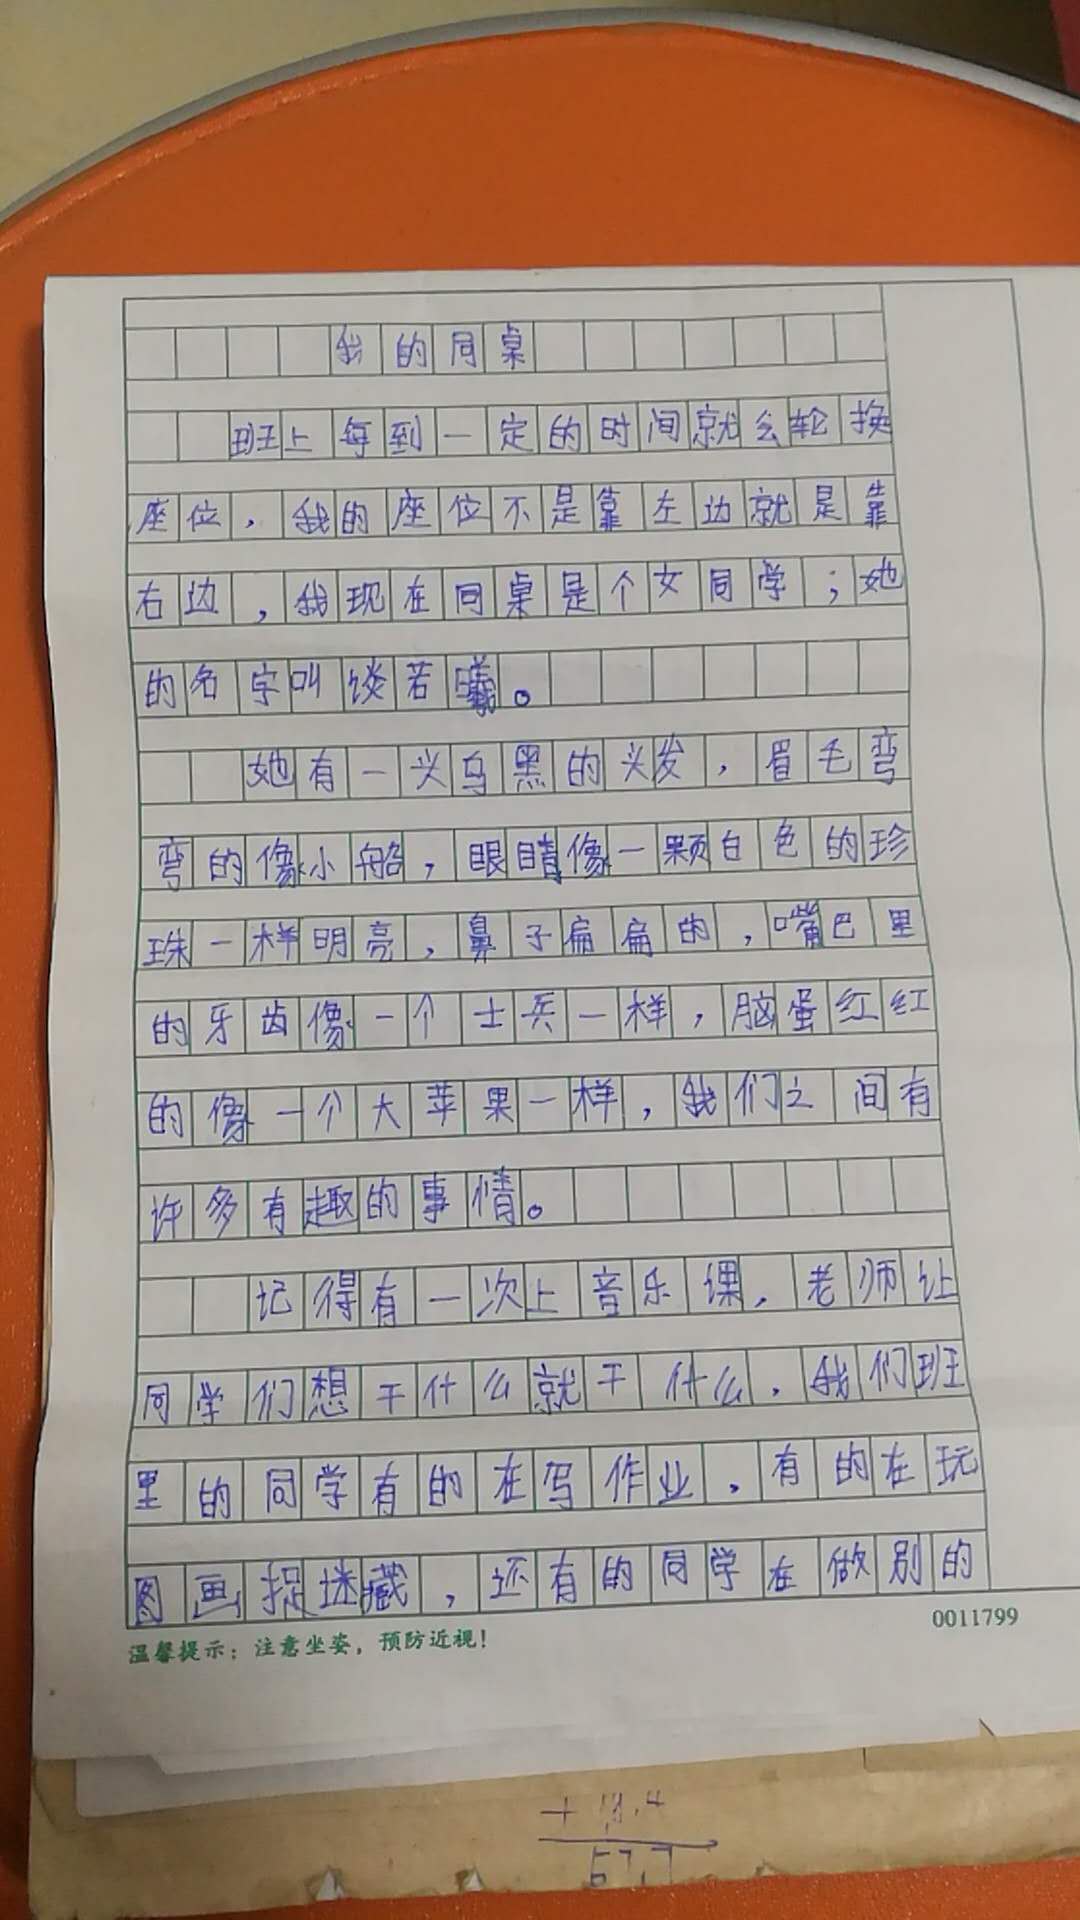 我的同桌
班上每到一定的时间就会轮换
座位，我的座位不是靠左边就是靠
右边，我现在同桌是个女同学；她
的名字叫谈若曦。
她有一头乌黑的头发，眉毛弯
弯的像小船，眼睛像一颗白色的珍
珠一样明亮，鼻子扁扁的，嘴巴里
的牙齿像一个士兵一样，脑蛋红红
的像一个大苹果一样，我们之间有
许多有趣的事情。
记得有一次上音乐课，老师让
同学们想干什么就干什么，我们班
里的同学有的在写作业，有的在玩
图画捉迷藏，还有的同学在做别的
0011799
温馨提示：注意坐姿，预防近视！
57.7